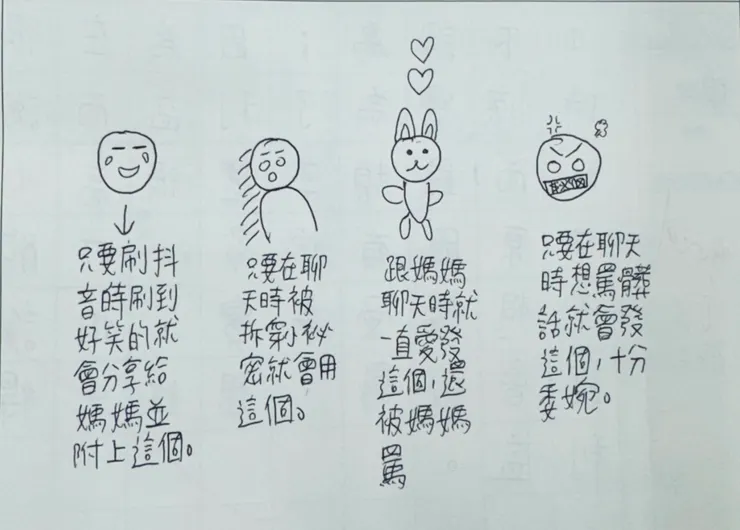 只要刷抖
音時刷到
好笑的就
會分享給
媽媽並
附上這個。
只要在聊
天時被
拆穿小祕
密就會用
這個。
跟媽媽
聊天時就
一直愛發
這個,還
被媽媽
罵
只要在聊天
時想罵髒
話就會發
這個,十分
委婉。